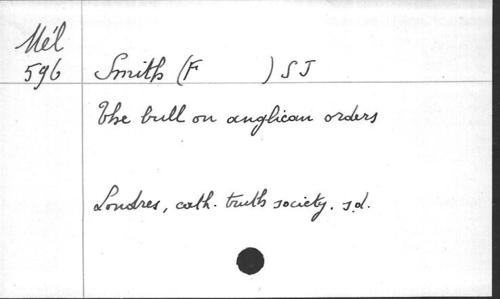 Mél
596 Smith (F ) SJ
The bull on anglican orders
Londres, cath. truth society. s.d.